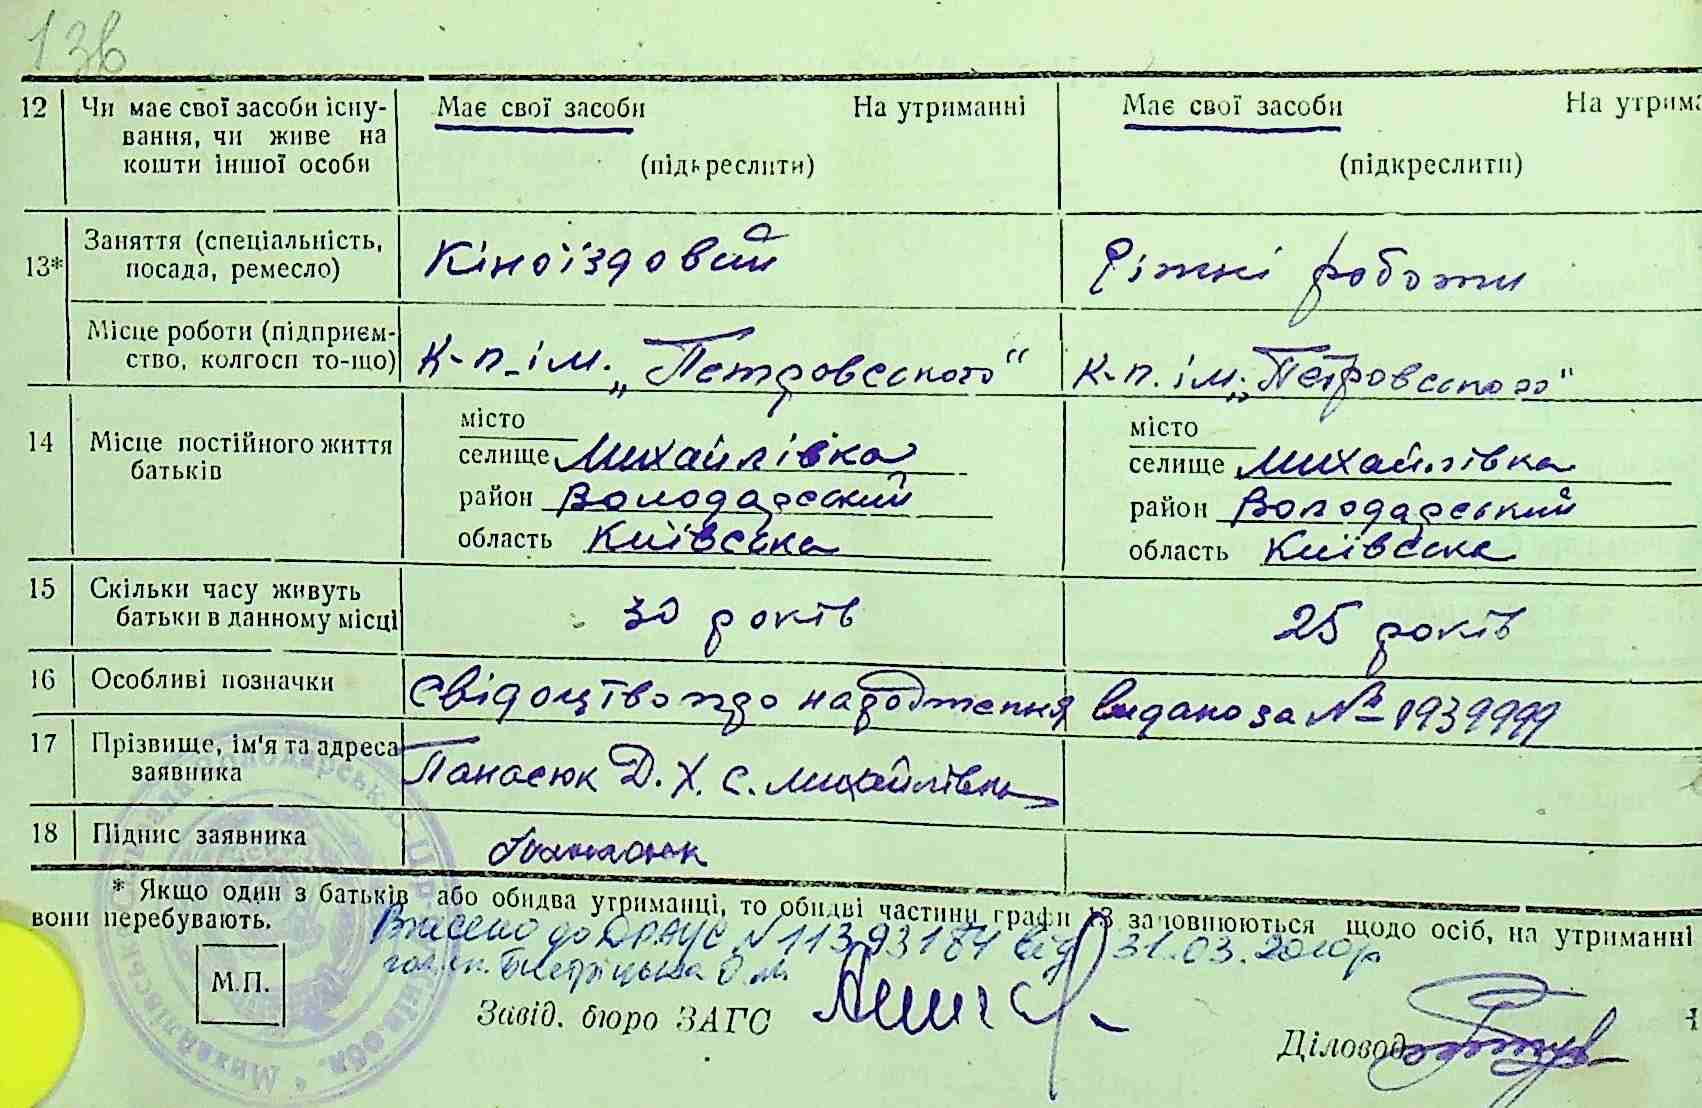 13в
12 Чи має свої засоби існу- Має свої засоби На утриманні Має свої засоби На утрима
вання, чи живе на
кошти іншої особи (підкреслити) (підкреслити)
13* Заняття (спеціальність, Кіноїздовий Ріжні роботи
посада, ремесло)
Місце роботи (підприєм- К-п. ім. „Петровського" К-п. ім. „Петровського"
ство, колгосп то-що)
14 Місце постійного життя місто місто
батьків селище Михайлівка селище Михайлівка
район Володарський район Володарський
область Київська область Київська
15 Скільки часу живуть 30 років 25 років
батьки в данному місці
16 Особливі позначки Свідоцтво про народження видано за № 1939999
17 Прізвище, ім'я та адреса Панасюк Д. Х. с. Михайлівка
заявника
18 Підпис заявника Панасюк
* Якщо один з батьків або обидва утриманці, то обидві частини графи 13 заповнюються щодо осіб, на утриманні
вони перебувають.
Внесено до ДРАЦС № 11393184 від 31.03.2010р
М.П. О.М.
Завід. бюро ЗАГС
Діловод